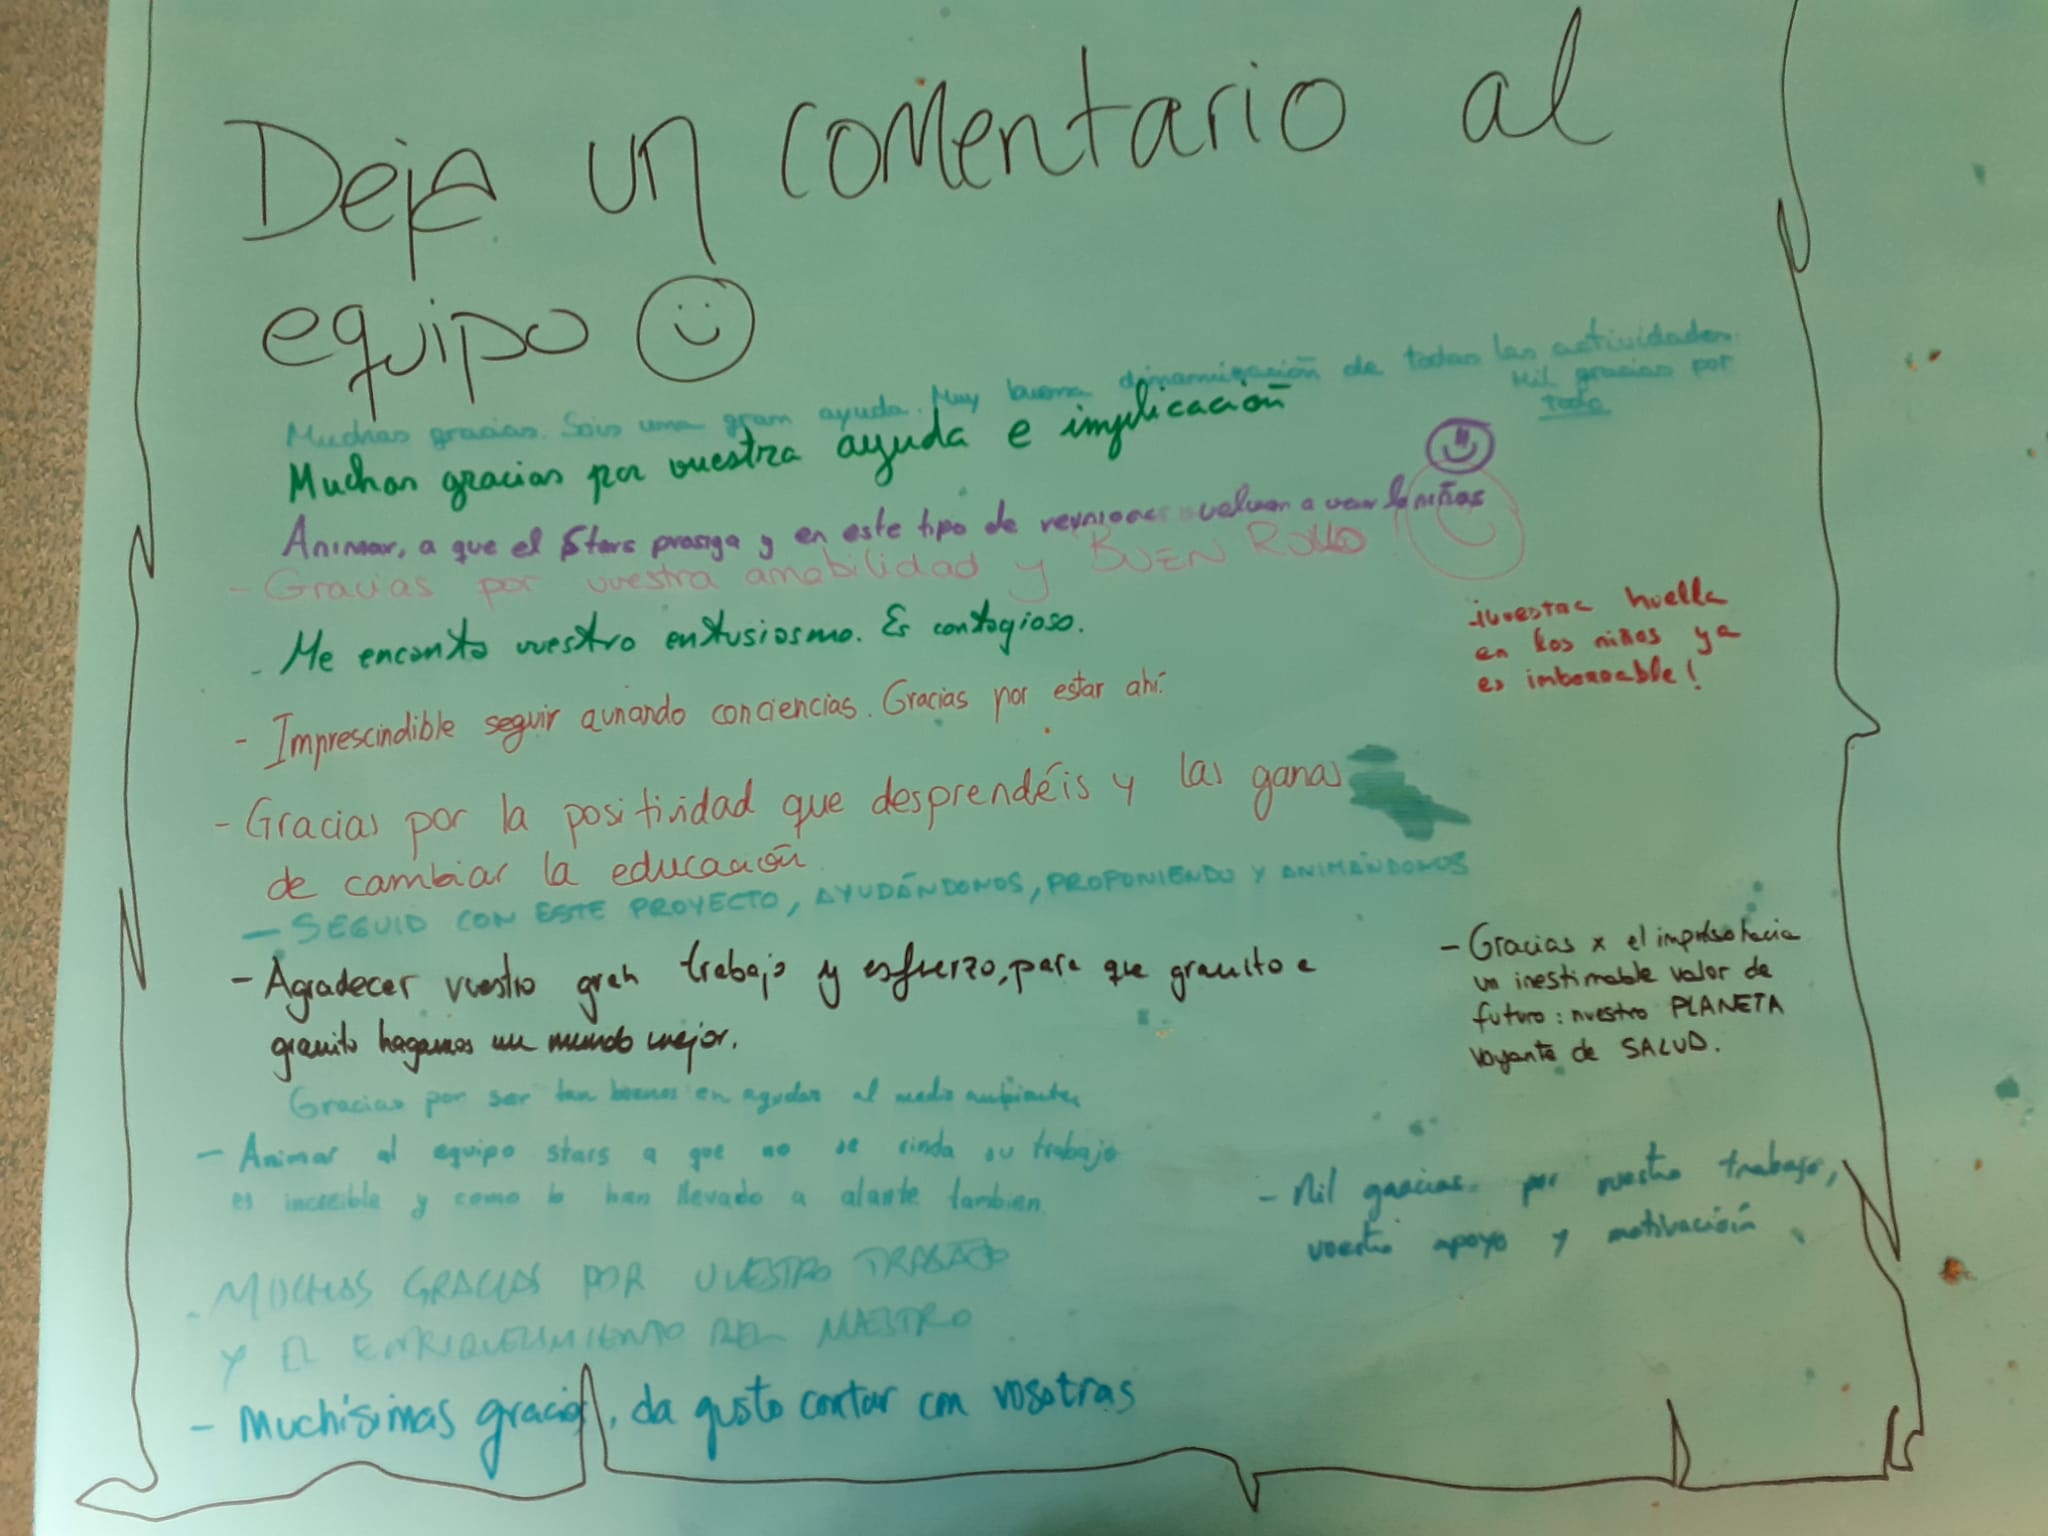 Deja un comentario al
equipo
Muchas gracias. Sois una gran ayuda. Muy buena dinamización de todas las actividades.
Mil gracias por
todo
Muchas gracias por vuestra ayuda e implicación
Animar, a que el Stars prosiga y en este tipo de reuniones vuelvan a venir niñas
- Gracias por vuestra amabilidad y BUEN ROLLO!
- Me encanta vuestro entusiasmo. Es contagioso.
¡Vuestra huella
en los niños ya
es imborrable!
- Imprescindible seguir aunando conciencias. Gracias por estar ahí.
- Gracias por la positividad que desprendéis y las ganas
de cambiar la educación
- SEGUID CON ESTE PROYECTO, AYUDÁNDONOS, PROPONIENDO Y ANIMÁNDONOS
- Agradecer vuestro gran trabajo y esfuerzo, para que granito a
granito hagamos un mundo mejor.
- Gracias x el impulso hacia
un inestimable valor de
futuro: nuestro PLANETA
garante de SALUD.
Gracias por ser tan buenos en ayudar al medio ambiente
- Animar al equipo stars a que no se rinda su trabajo
es increible y como lo han llevado a alante tambien.
- Mil gracias por vuestro trabajo,
vuestro apoyo y motivación
- MUCHAS GRACIAS POR VUESTRO TRABAJO
Y EL ENRIQUECIMIENTO DEL NUESTRO
- Muchísimas gracias, da gusto contar con vosotras